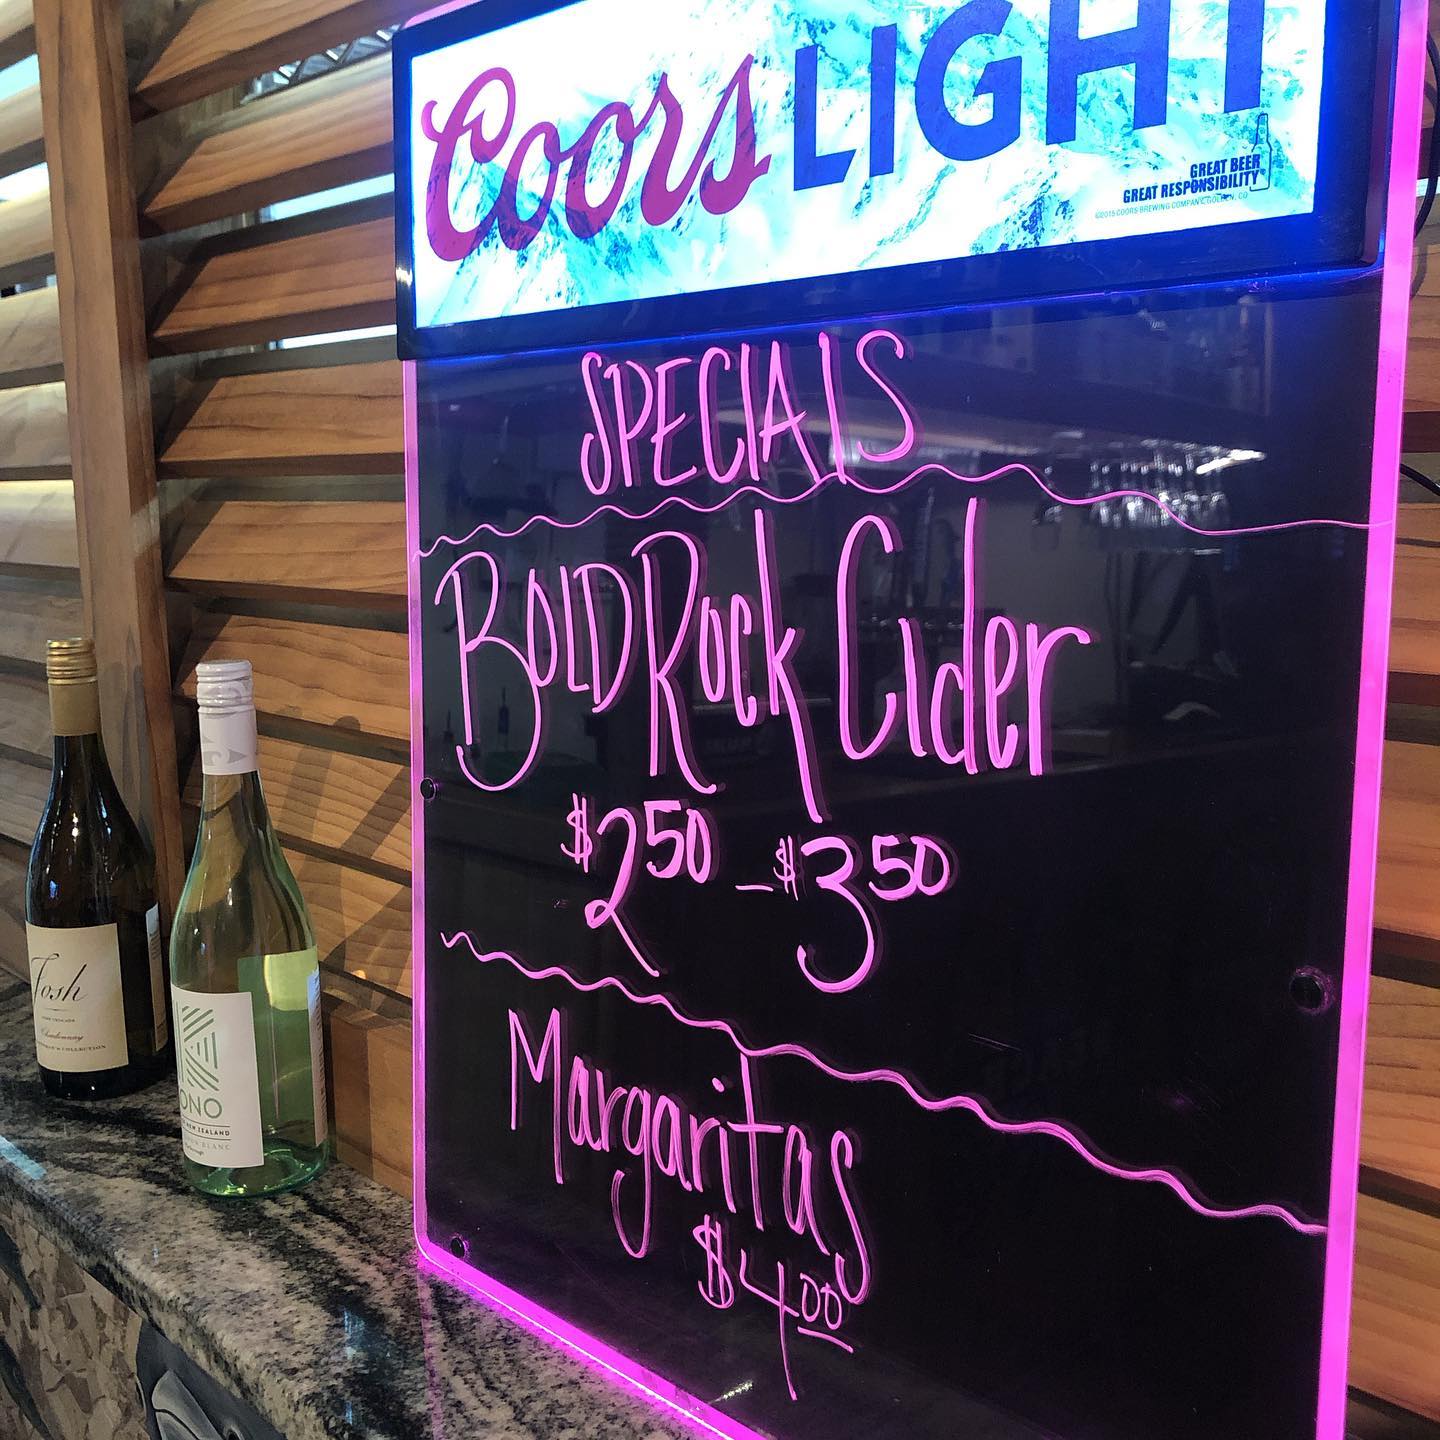 Coors LIGHT
GREAT BEER
GREAT RESPONSIBILITY®
©2015 COORS BREWING COMPANY, GOLDEN, CO
SPECIALS
BOLD ROCK CIDER
$2.50 - $3.50
Margaritas
$4.00
Josh
Chardonnay
ONO
NEW ZEALAND
BLANC